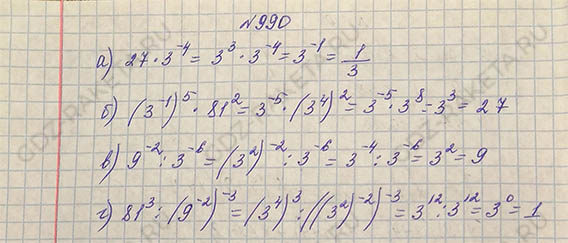 №990
а) 27 · 3⁻⁴ = 3³ · 3⁻⁴ = 3⁻¹ = 1/3
б) (3⁻¹)⁵ · 81² = 3⁻⁵ · (3⁴)² = 3⁻⁵ · 3⁸ = 3³ = 27
в) 9⁻² : 3⁻⁶ = (3²)⁻² : 3⁻⁶ = 3⁻⁴ : 3⁻⁶ = 3² = 9
г) 81³ : (9⁻²)⁻³ = (3⁴)³ : ((3²)⁻²)⁻³ = 3¹² : 3¹² = 3⁰ = 1
GDZ-RAKETA.RU